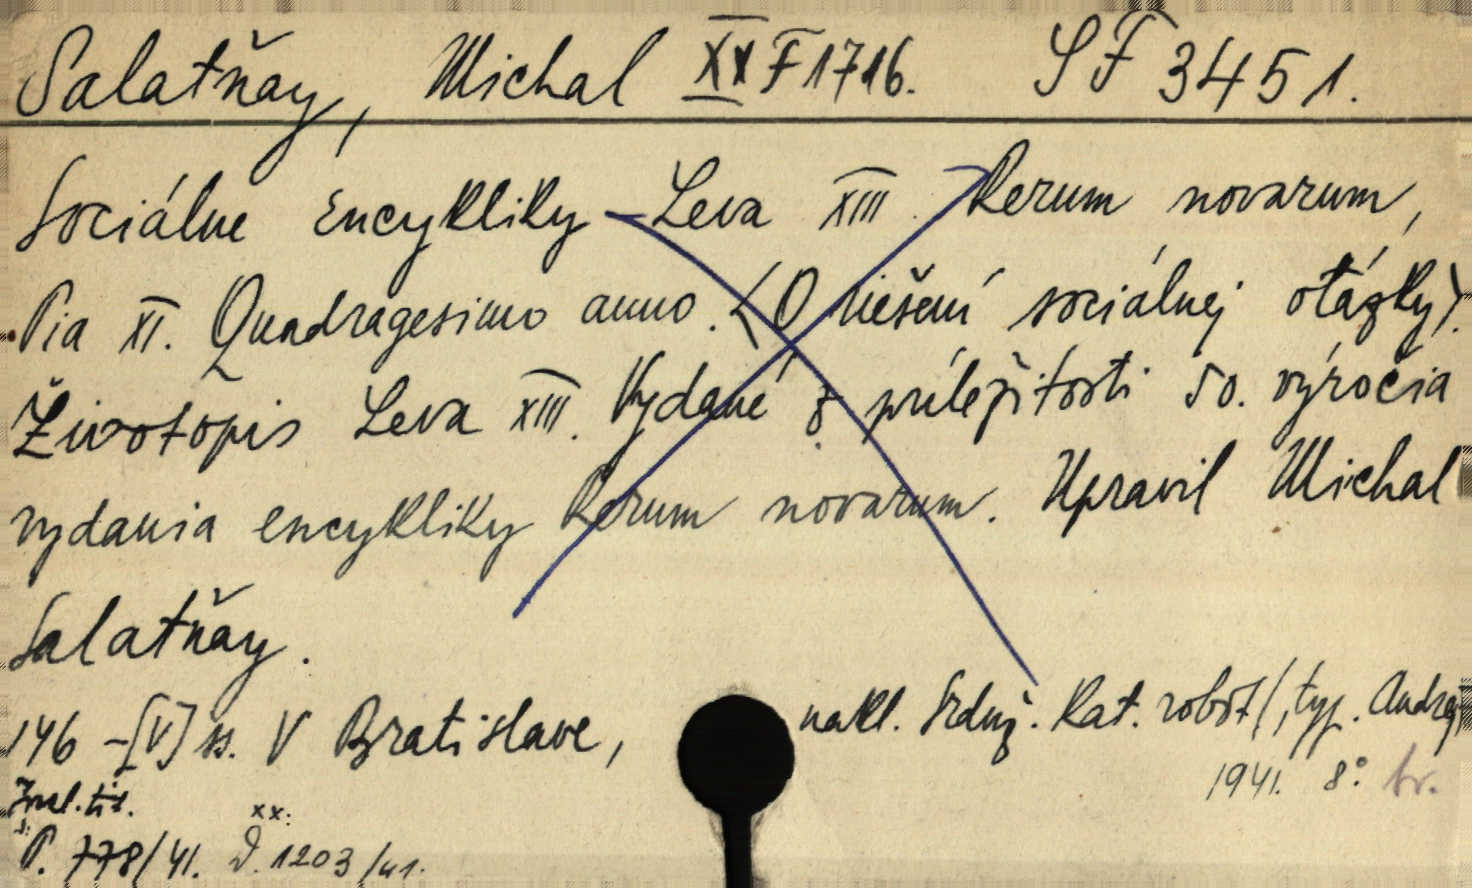 Salatňay, Michal XX F 1716. SF 3451.
Sociálne Encykliky Leva XIII. Rerum novarum,
Pia XI. Quadragesimo anno. (O riešení sociálnej otázky).
Životopis Leva XIII. Vydané z príležitosti 50. výročia
vydania encykliky Rerum novarum. Upravil Michal
Salatňay.
146 -[V] ss. V Bratislave, nakl. Srdnž. Kat. robot/, typ. Andrej/
1941. 8° br.
P. 778/41. D. 1203/41.
xx: